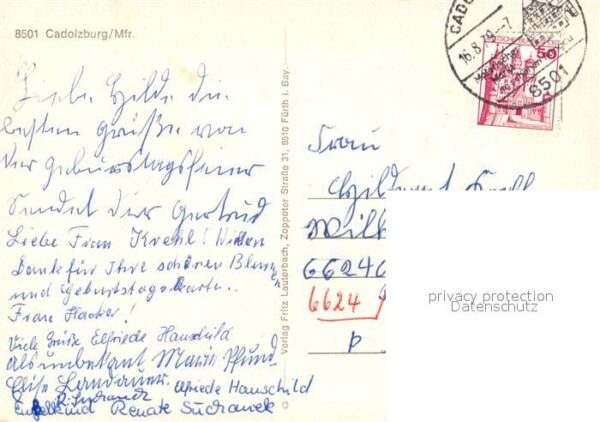 8501 Cadolzburg/Mfr.
Liebe Hilde die
besten Grüße von
der Geburtstagsfeier
Sendet dir Gertrud
Liebe Frau Krehl! Vielen
Dank für Ihre schönen Blumen
und Geburtstagskarte..
Frau Hacker!
Viele Grüße Elfriede Hauschild
Als unbekant Marie Pfund
Elise Landauer. Elfriede Hauschild
R. Suchanek
Renate Suchanek
Verlag Fritz Lauterbach, Zoppoter Straße 31, 8510 Fürth i. Bay.
CADO
16.8.79-7
Malerischer
Markt
8501
DEUTSCHE BUNDESPOST
50
Frau
Hildegard
Wilh
66240
6624
p
privacy protection
Datenschutz